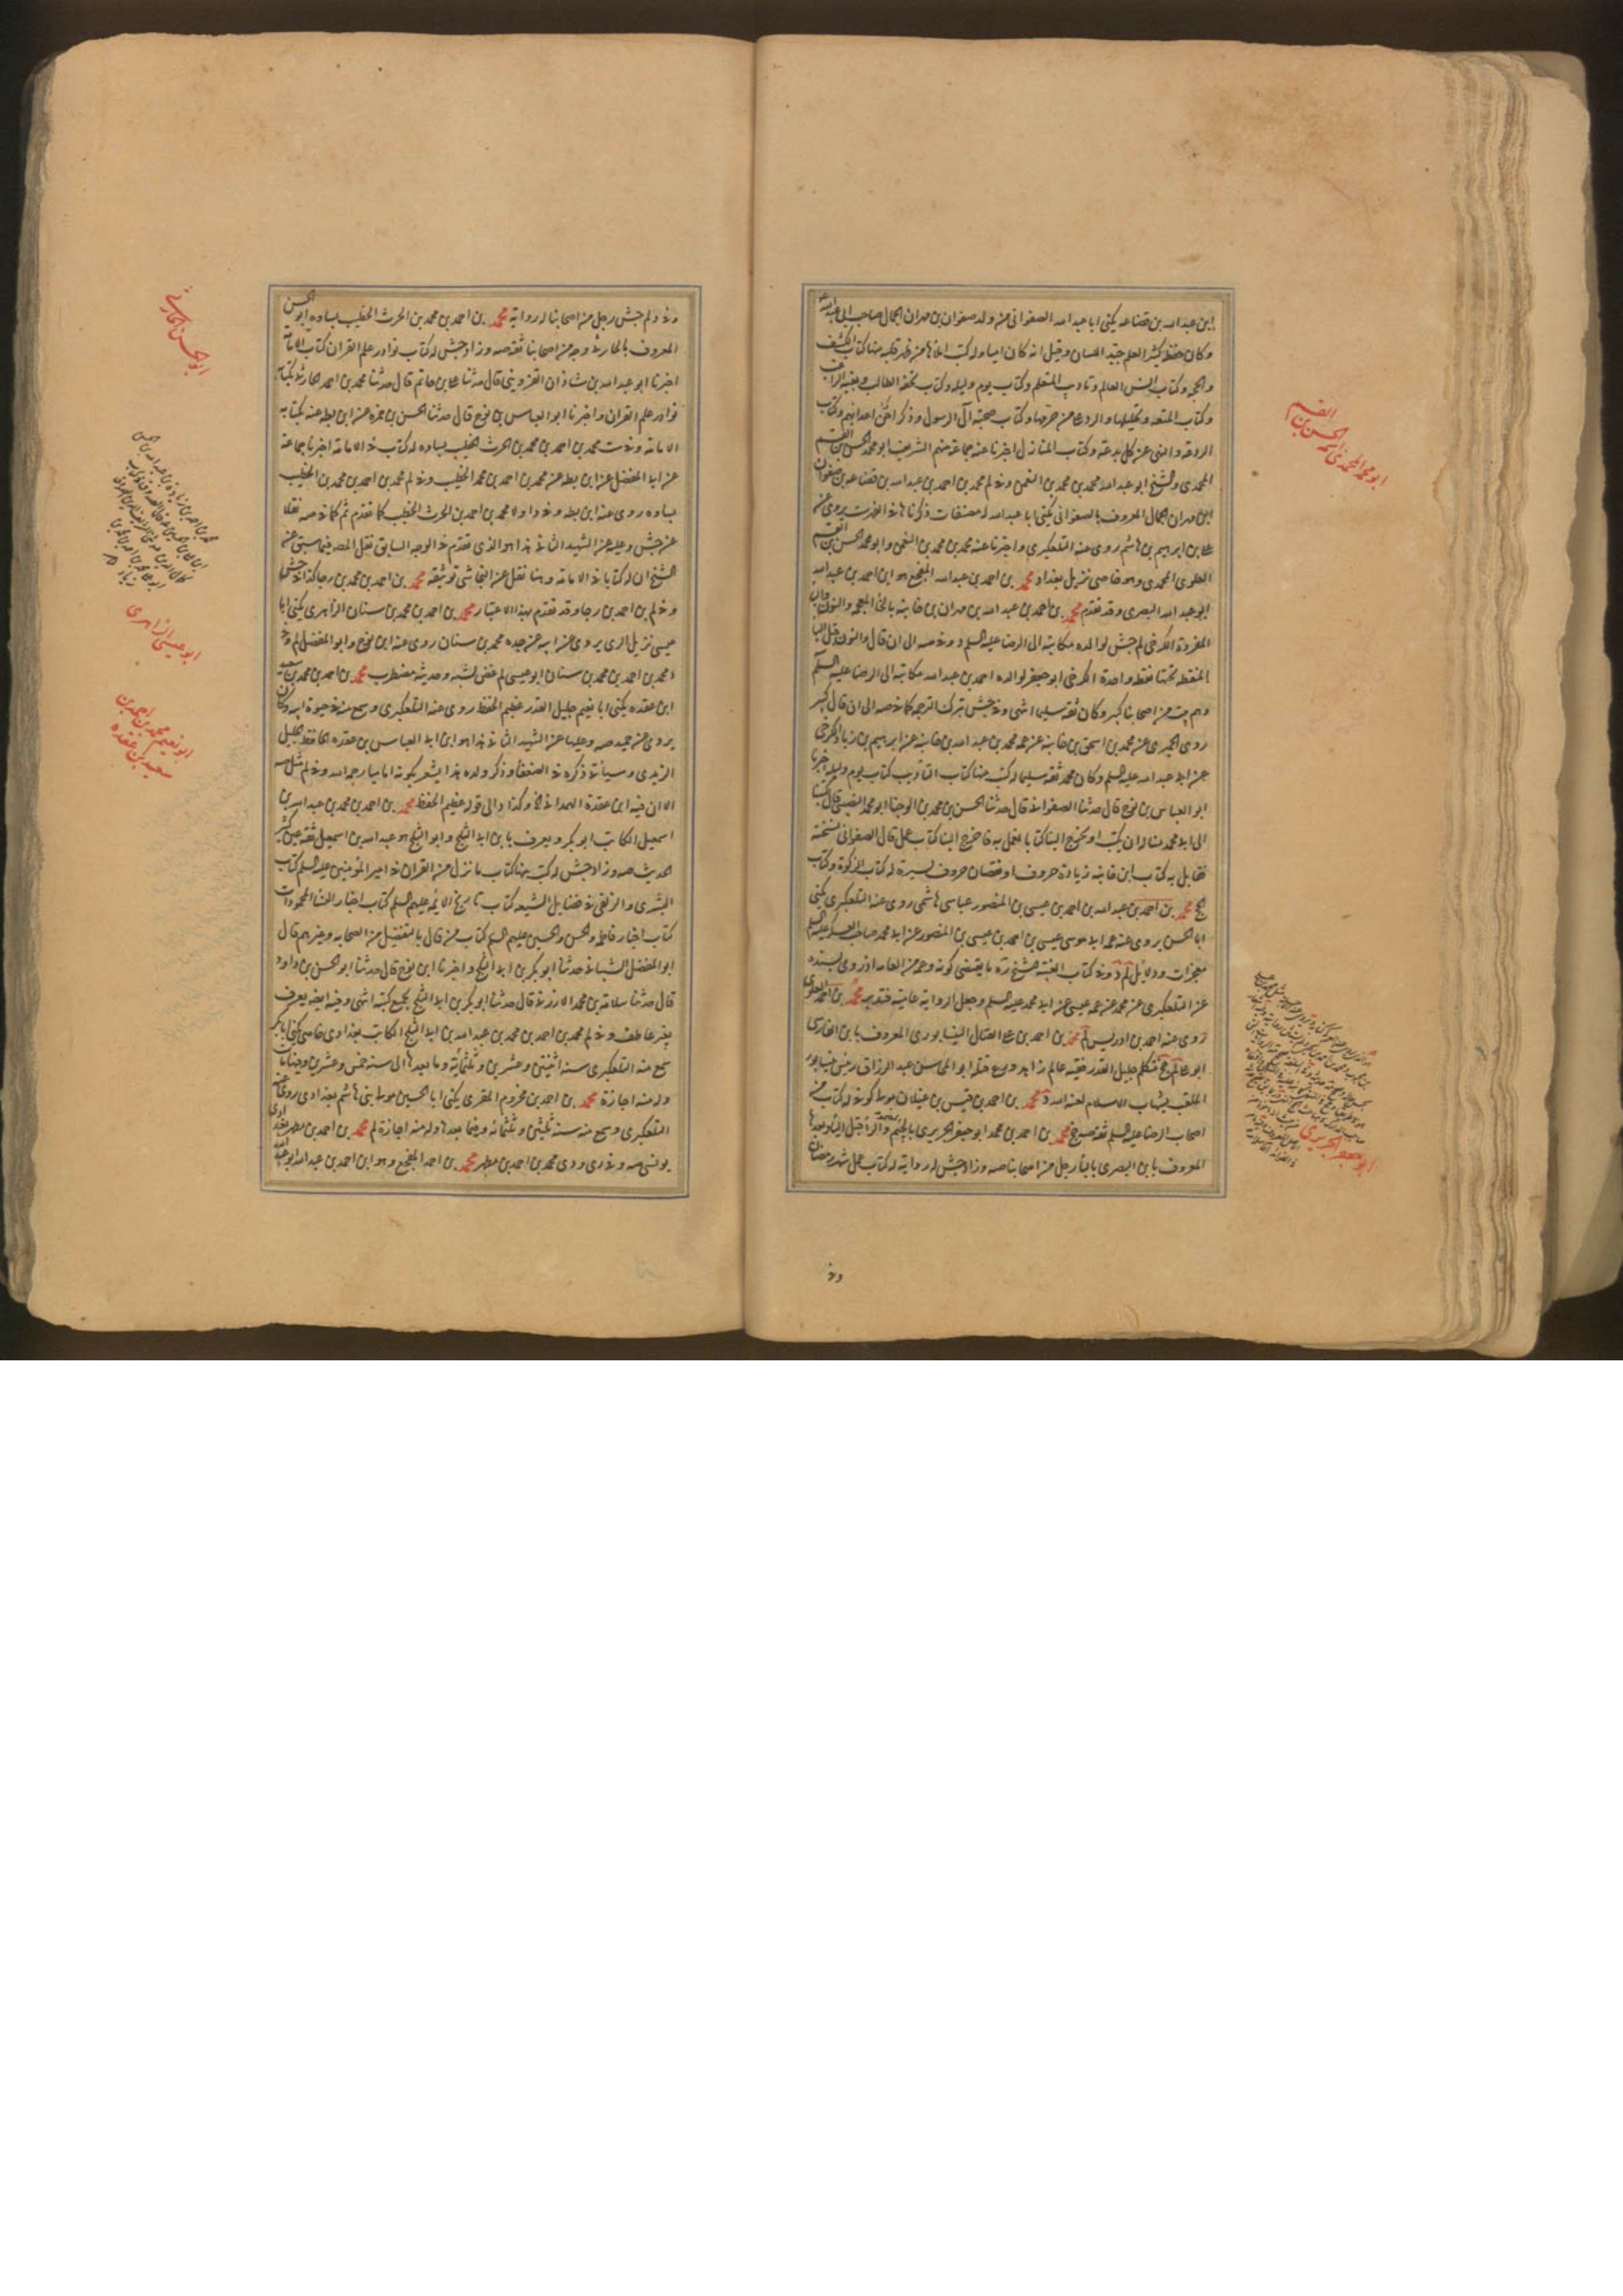 ابن عبد الله بن قضاعه يكنى ابا عبد الله الصفوانى من ولد صفوان بن مهران الجمال صاحب ابى عبد الله
وكان حفظه كثير العلم جيد اللسان وقيل انه كان اميا وله كتب املاها من ظهر قلبه منها كتاب الكشف
والحجه وكتاب انس العالم وتاديب المتعلم وكتاب يوم وليله وكتاب تحفه الطالب وبغيه الراغب
وكتاب المتعه وتحليلها والرد على من حرمها وكتاب صحبة آل الرسول وذكر احن اعدائهم وكتاب
الردعه والنهى عن كل بدعه وكتاب المنازل اخبرنا عنه جماعة منهم الشريف ابو محمد الحسن بن القسم
المحمدى والشيخ ابو عبد الله محمد بن محمد بن النعمن وفى لم محمد بن احمد بن عبد الله بن قضاعه بن صفوان
ابن مهران الجمال المعروف بالصفوانى يكنى ابا عبد الله له مصنفات ذكرناها فى الفهرست يروى عن
على بن ابرهيم بن هاشم روى عنه التلعكبرى واخبرنا عنه محمد بن محمد بن النعمن وابو محمد الحسن بن القسم
العلوى المحمدى وهو قاضى نزيل بغداد محمد بن احمد بن عبد الله المفجع هو ابن احمد بن عبد الله
ابو عبد الله البصرى وقد تقدم محمد بن احمد بن عبد الله بن مهران بن خانبه بالخاء المعجمه والنون والباء
المفردة الكرخى لم جش لوالده مكاتبه الى الرضا عليه السلم د وفى صه الى ان قال والنون قبل الباء
المنقطه تحتها نقطه واحدة الكرخى ابو جعفر لوالده احمد بن عبد الله مكاتبة الى الرضا عليه السلم
وهم بيت من اصحابنا كبير وكان ثقه سليما انتهى وفى جش ترك الترجمه كما فى صه الى ان قال كبير
روى الحميرى عن محمد بن اسحق بن خانبه عن عمه محمد بن عبد الله بن خانبه عن ابرهيم بن زياد الكرخى
عن ابى عبد الله عليه السلم وكان محمد ثقه سليما له كتب منها كتاب التاديب كتاب يوم وليله اخبرنا
ابو العباس بن نوح قال حدثنا الصفوانى قال حدثنا الحسن بن محمد بن الوجنا ابو محمد النصيبى قال كتبنا
الى ابى محمد نساله ان يكتب او يخرج الينا كتابا نعمل به فاخرج الينا كتاب عمل قال الصفوانى نسخته
فقابل به كتاب ابن خانبه زيادة حروف او نقصان حروف يسيرة له كتاب الزكوة وكتاب
الحج محمد بن احمد بن عبد الله بن احمد بن عيسى بن المنصور عباسى هاشمى روى عنه التلعكبرى يكنى
ابا الحسن يروى عن عمه ابى موسى عيسى بن احمد بن عيسى بن المنصور عن ابى محمد صاحب العسكر عليه السلم
معجزات ودلايل لم د وفى كتاب الغيبة للشيخ ره ما يقتضى كونه وعمه من العامه اذ روى بسنده
عن التلعكبرى عن محمد عن عمه عيسى عن ابى محمد عليه السلم وجعل الرواية عامية فتدبر محمد بن احمد العلوى
روى عنه احمد بن ادريس لم محمد بن احمد بن على الفتال النيشابورى المعروف بابن الفارسى
ابو على لم جخ متكلم جليل القدر فقيه عالم زاهد ورع قتله ابو المحاسن عبد الرزاق رئيس نيشابور
الملقب بشهاب الاسلام لعنه الله د محمد بن احمد بن قيس بن غيلان مولى كوفى له كتاب من
اصحاب الرضا عليه السلم ثقه صه جخ محمد بن احمد بن محمد ابو جعفر الجريرى بالجيم والراء قبل الياء وبعدها
المعروف بابن البصرى بالباء رجل من اصحابنا صه وزاد جش له رواية له كتاب عمل شهر رمضان
وفى
ابو محمد المحمدى الحسن بن القسم
ابو جعفر الجريرى
وفى د لم جش رجل من اصحابنا له رواية محمد بن احمد بن محمد بن الحرث الخطيب بساوه ابو الحسن
المعروف بالحارثى وجه من اصحابنا ثقه صه وزاد جش له كتاب نوادر علم القران كتاب الامامة
اخبرنا ابو عبد الله بن شاذان القزوينى قال حدثنا على بن حاتم قال حدثنا محمد بن احمد الحارثى بكتابه
نوادر علم القران واخبرنا ابو العباس بن نوح قال حدثنا الحسن بن حمزه عن ابن بطه عنه بكتابه
الامامه وفى ست محمد بن احمد بن محمد بن الحرث الخطيب بساوه له كتاب فى الامامه اخبرنا جماعة
عن ابى المفضل عن ابن بطه عن محمد بن احمد بن محمد الخطيب وفى لم محمد بن احمد بن محمد بن الخطيب
بساوه روى عنه ابن بطه وفى د اولا محمد بن احمد بن الحرث الخطيب كما تقدم ثم كما فى صه نقلا
عن جش وعليه عن الشهيد الثانى هذا هو الذى تقدم فى الوجه السابق نقل المصنف فيما سبق عن
الشيخ ان له كتابا فى الامامه وهنا نقل عن النجاشى توثيقه محمد بن احمد بن محمد بن رجا كذا فى جش
وفى لم بن احمد بن رجا وقد تقدم بهذا الاعتبار محمد بن احمد بن محمد بن سنان الزاهرى يكنى ابا
عيسى نزيل الرى يروى عن ابيه عن جده محمد بن سنان روى عنه ابن نوح وابو المفضل لم وفى
د محمد بن احمد بن محمد بن سنان ابو عيسى لم غض نسبه وحديثه مضطرب محمد بن احمد بن محمد بن سعيد
ابن عقده يكنى ابا نعيم جليل القدر عظيم الحفظ روى عنه التلعكبرى وسمع منه فى حيوة ابيه وكان
يروى عن حميد صه وعليها عن الشهيد الثانى هذا هو ابن ابى العباس بن عقده الحافظ الجليل
الزيدى وسياتى ذكره فى الضعفا وذكر ولده هذا يشعر بكونه اماميا رحمه الله وفى لم مثل صه
الا ان فيه ابن عقدة الهمدانى وكذا د الى قوله عظيم الحفظ محمد بن احمد بن محمد بن عبد الله بن
اسمعيل الكاتب ابو بكر ويعرف بابن ابى الثلج وابو الثلج هو عبد الله بن اسمعيل ثقه عين كثير
الحديث صه وزاد جش له كتب منها كتاب ما نزل من القران فى امير المؤمنين عليه السلم كتاب
البشرى والزلفى فى فضايل الشيعه كتاب تاريخ الائمه عليهم السلم كتاب اخبار النساء الممدوحات
كتاب اخبار فاطمه والحسن والحسين عليهم السلم كتاب من قال بالتفضيل من الصحابه وغيرهم قال
ابو المفضل الشيبانى حدثنا ابو بكر بن ابى الثلج واخبرنا ابن نوح قال حدثنا ابو الحسن بن داود
قال حدثنا سلامة بن محمد الارزنى قال حدثنا ابو بكر بن ابى الثلج بجميع كتبه انتهى وفيه ايضه يعرف
بغير عاطف وفى لم محمد بن احمد بن محمد بن عبد الله بن ابى الثلج الكاتب بغدادى خاصى يكنى ابا بكر
سمع منه التلعكبرى سنه اثنتين وعشرين وثلثمائة وما بعدها الى سنه خمس وعشرين وفيها مات
وله منه اجازة محمد بن احمد بن مخزوم المقرى يكنى ابا الحسين مولى بنى هاشم بغدادى روى عنه
التلعكبرى وسمع منه سنه ثلثين وثلثمائه وفيما بعدها وله منه اجازة لم محمد بن احمد بن مطهر بغدادى
يونسى صه وفى دى محمد بن احمد بن مطهر محمد بن احمد المفجع وهو ابن احمد بن عبد الله ابو عبد الله
ابو الحسن الحارثى
ابو عيسى الزاهرى
ابو نعيم محمد بن احمد بن
سعيد بن عقده